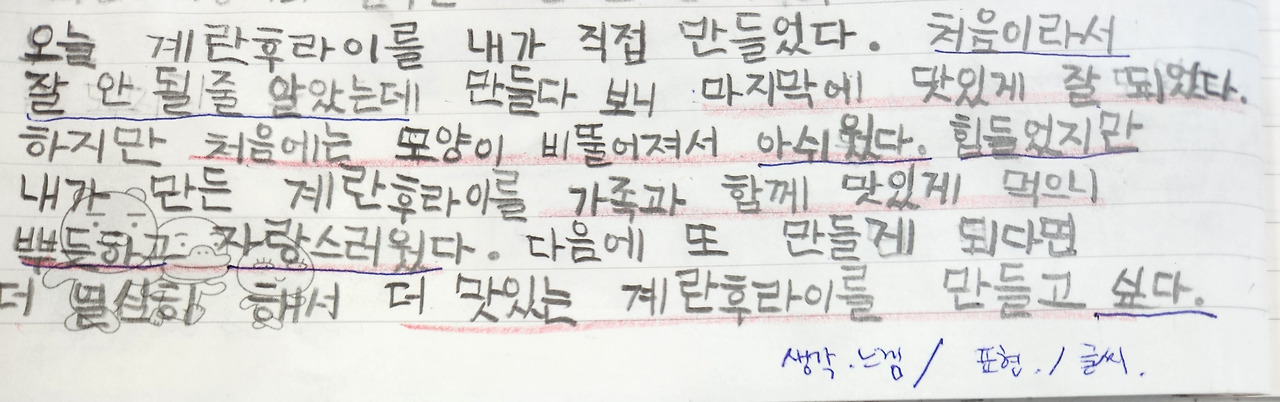 오늘 계란후라이를 내가 직접 만들었다. 처음이라서
잘 안 될 줄 알았는데 만들다 보니 마지막에 맛있게 잘 되었다.
하지만 처음에는 모양이 비뚤어져서 아쉬웠다. 힘들었지만
내가 만든 계란후라이를 가족과 함께 맛있게 먹으니
뿌듯하고 자랑스러웠다. 다음에 또 만들게 되다면
더 열심히 해서 더 맛있는 계란후라이를 만들고 싶다.
생각.느낌/ 표현./글씨.